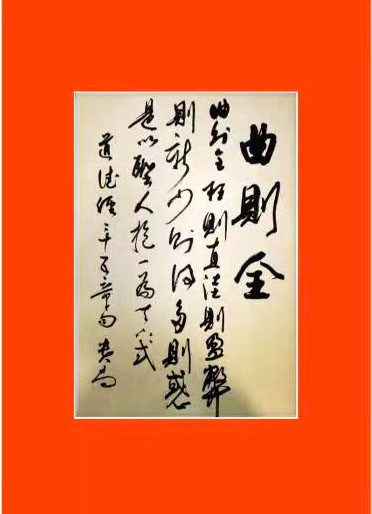 曲則全
曲則全枉則直洼則盈弊
則新少則得多則惑
是以聖人抱一為天下式
道德經 章句